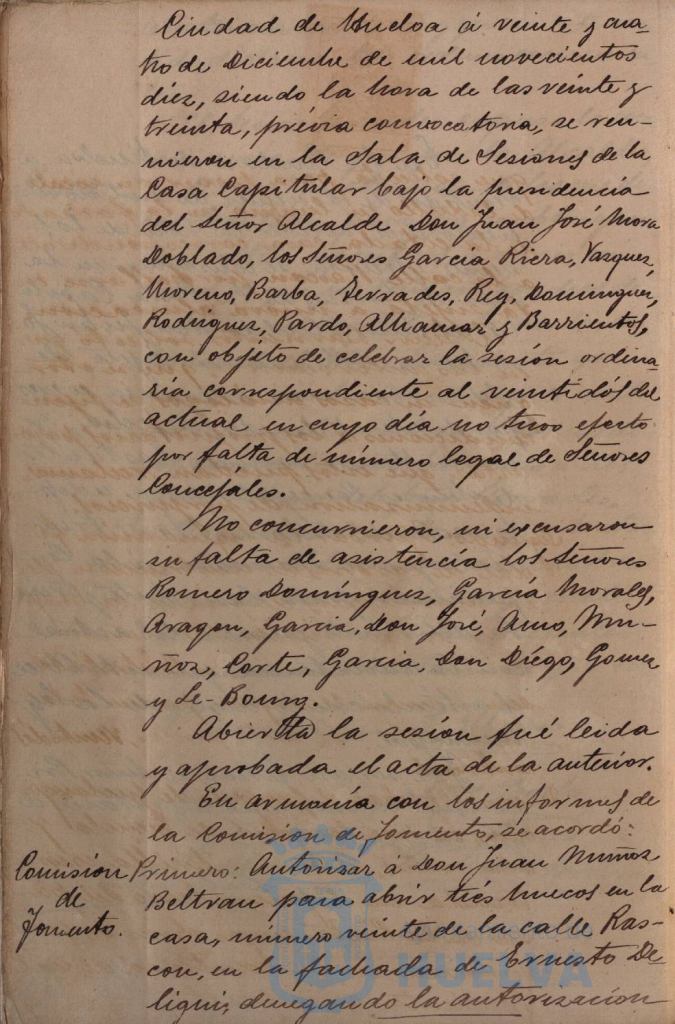 Ciudad de Huelva á veinte y cua-
tro de Diciembre de mil novecientos
diez, siendo la hora de las veinte y
treinta, prévia convocatoria, se reu-
nieron en la Sala de Sesiones de la
Casa Capitular bajo la presidencia
del Señor Alcalde Don Juan José Mora
Doblado, los Señores García Riera, Vazquez,
Moreno, Barba, Terrades, Rey, Dominguez,
Rodriguez, Pardo, Alhamar y Barrientos,
con objeto de celebrar la sesión ordina-
ria correspondiente al veintidós del
actual en cuyo día no tuvo efecto
por falta de número legal de Señores
Concejales.
No concurrieron, ni excusaron
su falta de asistencia los Señores
Romero Domínguez, García Morales,
Aragon, Garcia, Don José, Amo, Mu-
ñoz, Corte, Garcia, Don Diégo, Gomez
y Le-Bourg.
Abierta la sesión fué leida
y aprobada el acta de la anterior.
En armonía con los informes de
la Comision de Fomento, se acordó:
Comisión
de
Fomento.
Primero: Autorizar á Don Juan Muñoz
Beltran para abrir trés huecos en la
casa, número veinte de la calle Ras-
con, en la fachada de Ernesto De-
ligni, denegando la autorización
HUELVA